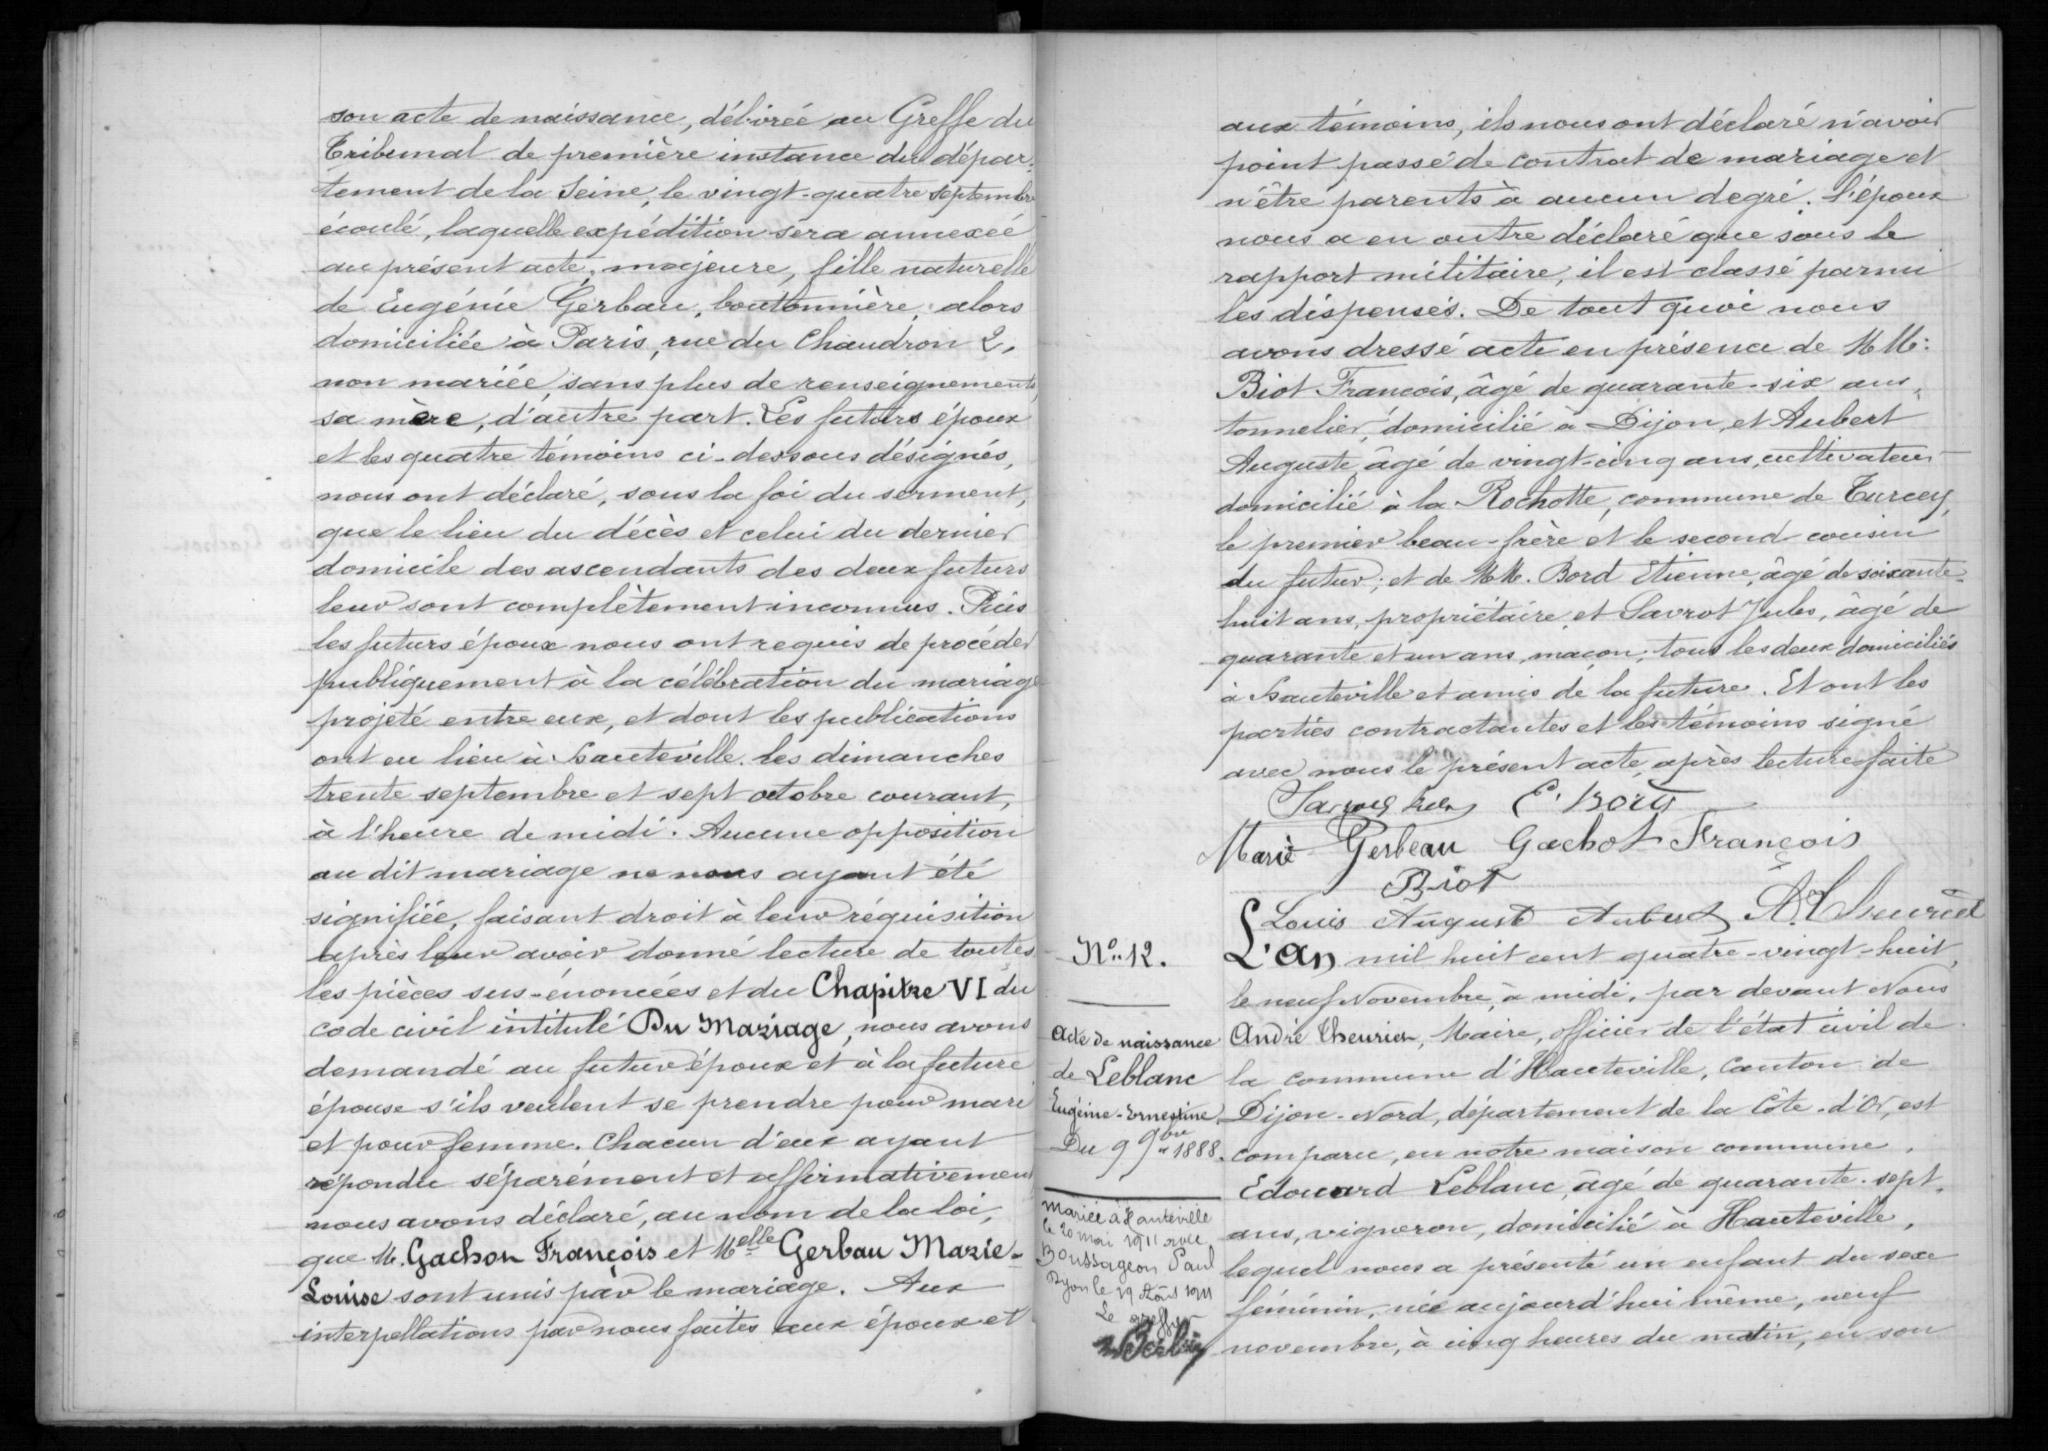 son acte de naissance, délivrée au Greffe du
Tribunal de première instance du dépar-
tement de la Seine, le vingt-quatre septembre
écoulé, laquelle expédition sera annexée
au présent acte, majeure, fille naturelle
de Eugénie Gerbau, boutonnière, alors
domiciliée à Paris, rue du Chaudron 2,
non mariée, sans plus de renseignements,
sa mère, d'autre part. Les futurs époux
et les quatre témoins ci-dessous désignés,
nous ont déclaré, sous la foi du serment,
que le lieu du décès et celui du dernier
domicile des ascendants des deux futurs
leur sont complètement inconnus. Puis
les futurs époux nous ont requis de procéder
publiquement à la célébration du mariage
projeté entre eux, et dont les publications
ont eu lieu à Hauteville les dimanches
trente septembre et sept octobre courant,
à l'heure de midi. Aucune opposition
au dit mariage ne nous ayant été
signifiée, faisant droit à leur réquisition
après leur avoir donné lecture de toutes
les pièces sus-énoncées et du Chapitre VI du
code civil intitulé Du Mariage, nous avons
demandé au futur époux et à la future
épouse s'ils veulent se prendre pour mari
et pour femme. Chacun d'eux ayant
répondu séparément et affirmativement
nous avons déclaré, au nom de la loi,
que M. Gachon François et Melle Gerbau Marie-
Louise sont unis par le mariage. Aux
interpellations par nous faites aux époux et
aux témoins, ils nous ont déclaré n'avoir
point passé de contrat de mariage et
n'être parents à aucun degré. L'époux
nous a en outre déclaré que sous le
rapport militaire, il est classé parmi
les dispensés. De tout quoi nous
avons dressé acte en présence de MM:
Biot François, âgé de quarante-six ans,
tonnelier, domicilié à Dijon, et Aubert
Auguste, âgé de vingt-cinq ans, cultivateur
domicilié à la Rochotte, commune de Turcey,
le premier beau-frère et le second cousin
du futur; et de MM. Bord Etienne, âgé de soixante-
huit ans, propriétaire et Savrot Jules, âgé de
quarante et un ans, maçon; tous les deux domiciliés
à Hauteville et amis de la future. Et ont les
parties contractantes et les témoins signé
avec nous le présent acte, après lecture faite
E. Bord
Marie Gerbeau Gachot François
Biot
Louis August Aubert A. Theuriet
No. 12.
Acte de naissance
de Leblanc
Eugénie-Ernestine
Du 9 9bre 1888.
Mariée à Hauteville
le 20 mai 1911 avec
Boussageon Paul
Dijon le 19 Août 1911
Le greffier
L'an mil huit cent quatre-vingt-huit,
le neuf Novembre, à midi, par devant Nous
André Theuriet, Maire, officier de l'état civil de
la commune d'Hauteville, canton de
Dijon-Nord, département de la Côte-d'Or, est
comparu, en notre maison commune,
Edouard Leblanc, âgé de quarante-sept
ans, vigneron, domicilié à Hauteville,
lequel nous a présenté un enfant du sexe
féminin, née aujourd'hui même, neuf
novembre, à cinq heures du matin, en son